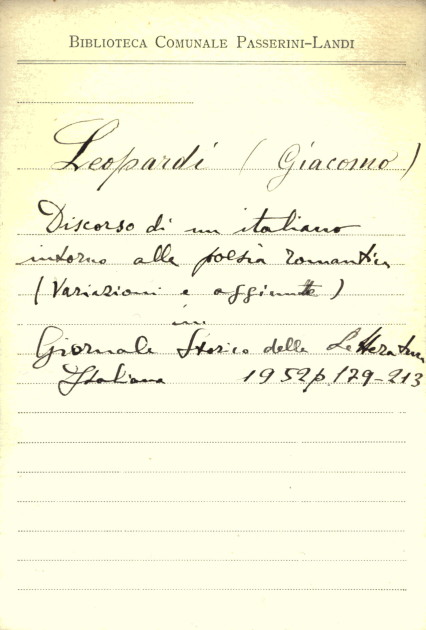 BIBLIOTECA COMUNALE PASSERINI-LANDI
Leopardi (Giacomo)
Discorso di un italiano
intorno alla poesia romantica
(Variazioni e aggiunte)
in
Giornale Storico della Letteratura
Italiana 1952 p 179-213